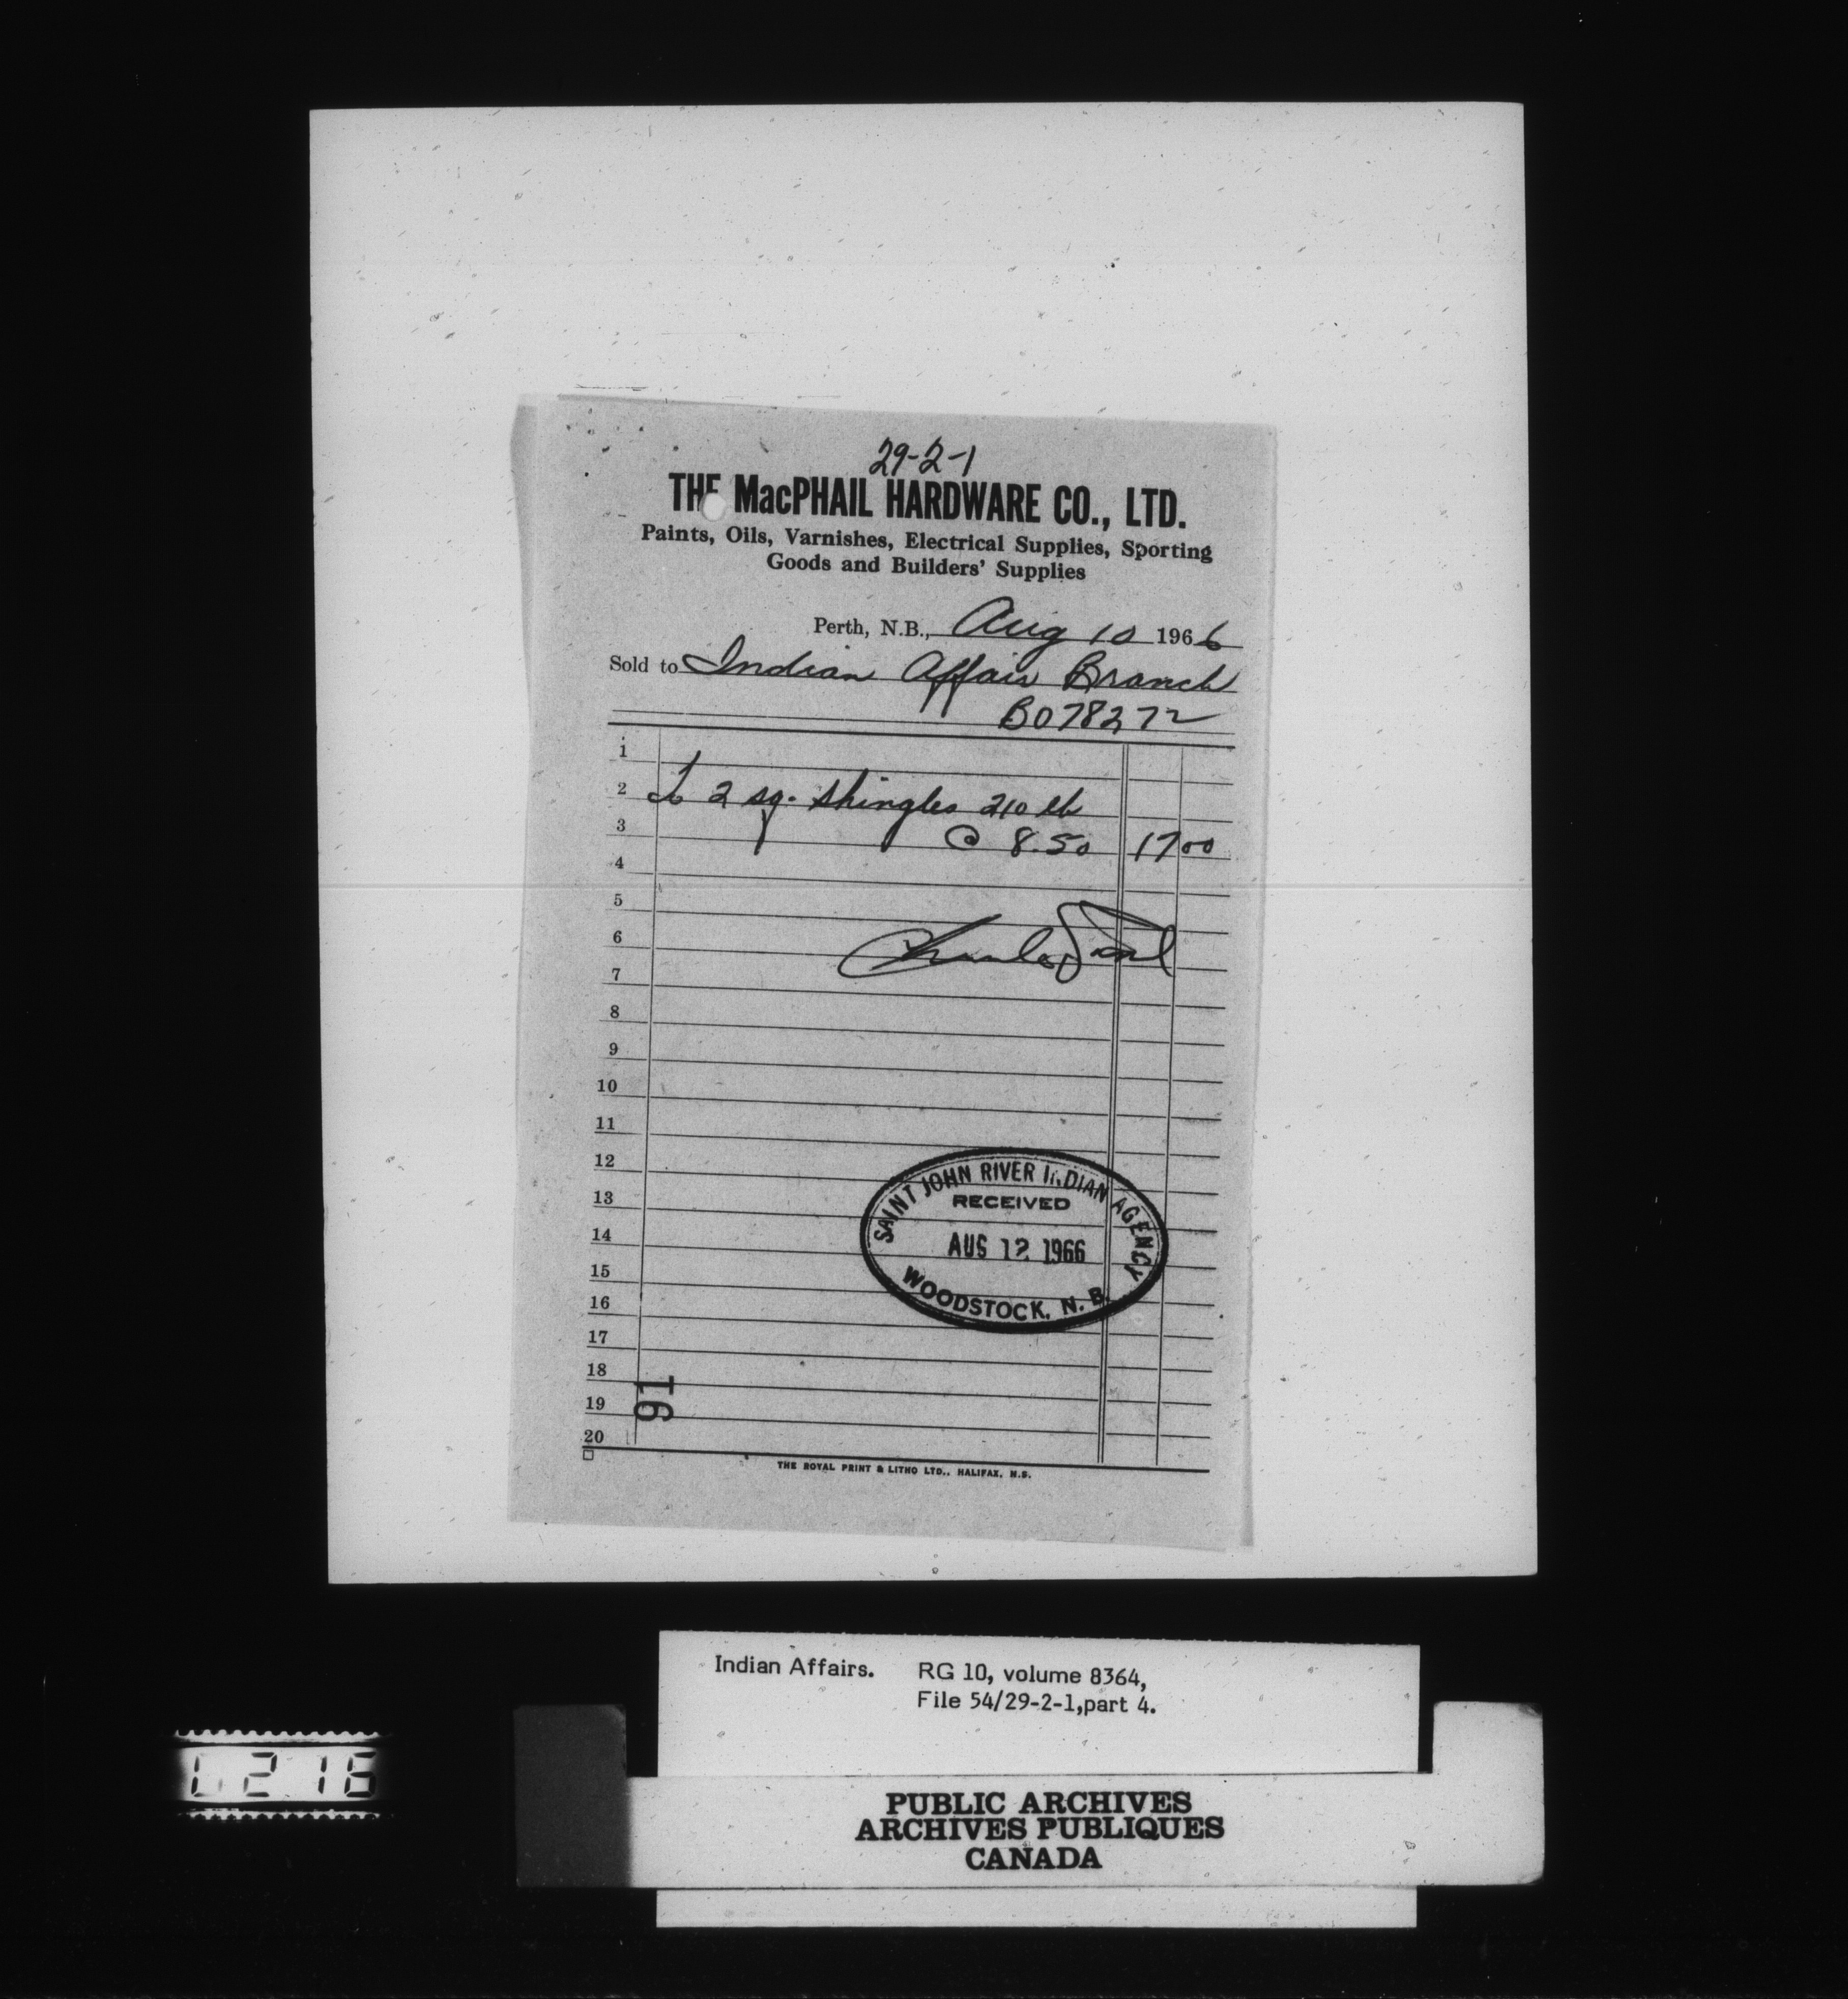 29-2-1
THE MacPHAIL HARDWARE CO., LTD.
Paints, Oils, Varnishes, Electrical Supplies, Sporting
Goods and Builders' Supplies
Perth, N.B., Aug 10 1966
Sold to Indian Affair Branch
B078272
1
2 To 2 sq. shingles 210 lb
3 @ 8.50 17 00
4
5
6 Charles
7
8
9
10
11
12
13
14
15
16
17
18
19
20
SAINT JOHN RIVER INDIAN AGENCY
RECEIVED
AUG 12 1966
WOODSTOCK, N. B.
91
THE ROYAL PRINT & LITHO LTD., HALIFAX, N.S.
Indian Affairs. RG 10, volume 8364,
File 54/29-2-1,part 4.
PUBLIC ARCHIVES
ARCHIVES PUBLIQUES
CANADA
216